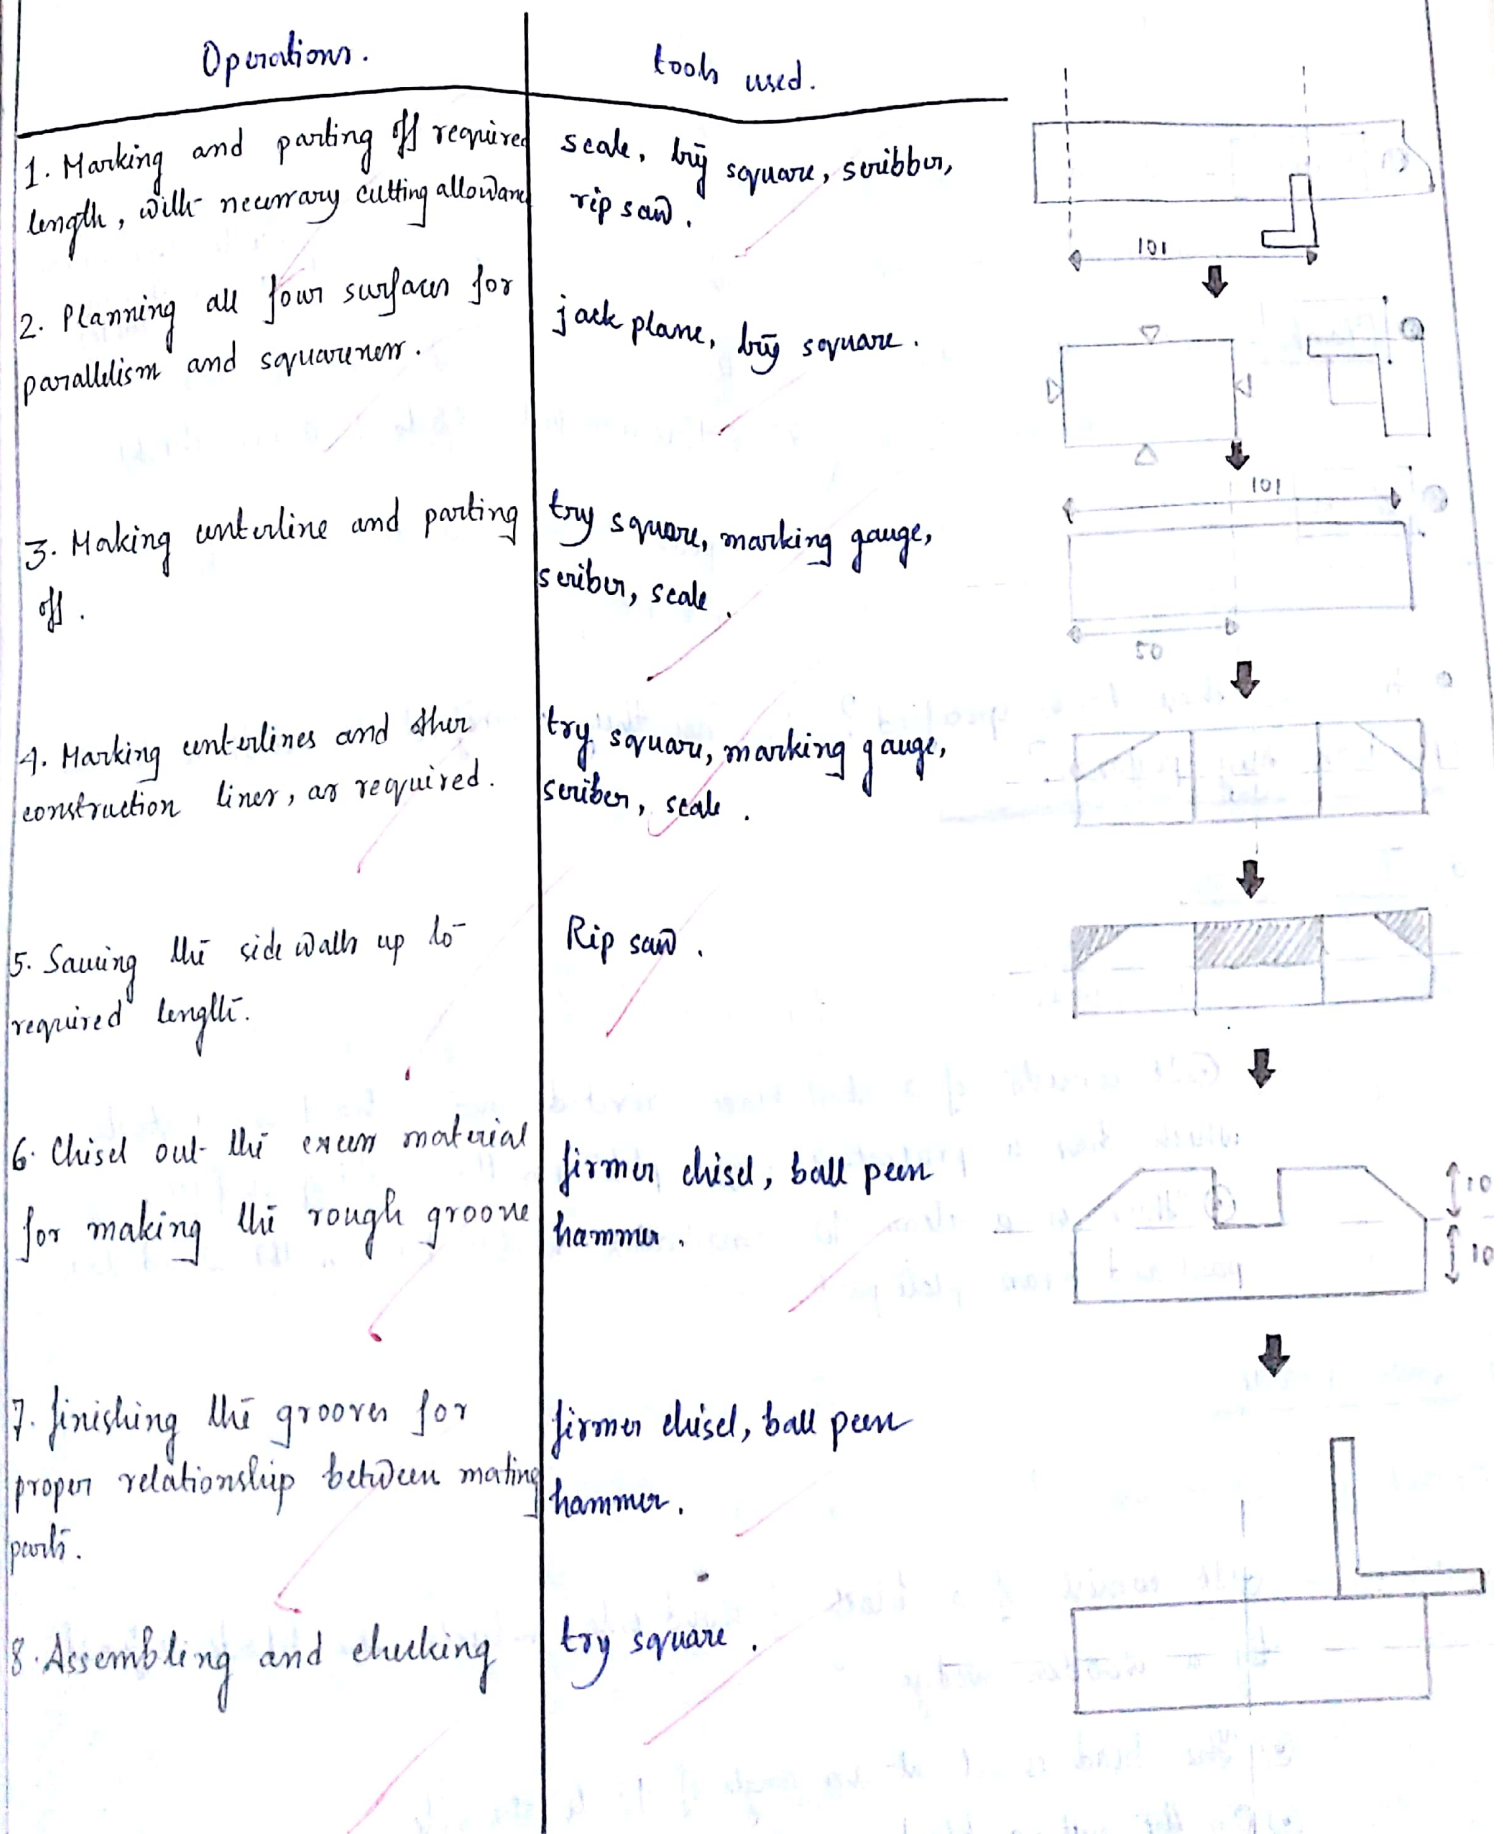 Operations.
tools used.
1. Marking and parting off required
length, with necessary cutting allowance
scale, try square, scribber,
rip saw.
101
2. Planning all four surfaces for
parallelism and squareness.
jack plane, try square.
3. Making centerline and parting
off.
try square, marking gauge,
scriber, scale.
101
50
4. Marking centerlines and other
construction lines, as required.
try square, marking gauge,
scriber, scale.
5. Sawing the side walls up to
required length.
Rip saw.
6. Chisel out the excess material
for making the rough groove
firmer chisel, ball peen
hammer.
10
10
7. finishing the grooves for
proper relationship between mating
parts.
firmer chisel, ball peen
hammer.
8. Assembling and checking
try square.